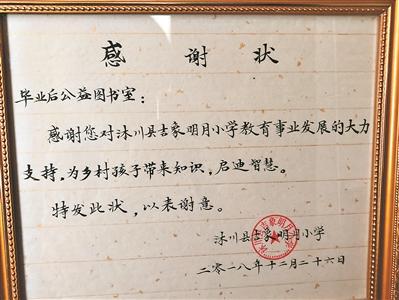 感谢状
毕业后公益图书室：
感谢您对沐川县吉象明月小学教育事业发展的大力
支持，为乡村孩子带来知识，启迪智慧。
特发此状，以表谢意。
沐川县吉象明月小学
二零一八年十二月二十六日